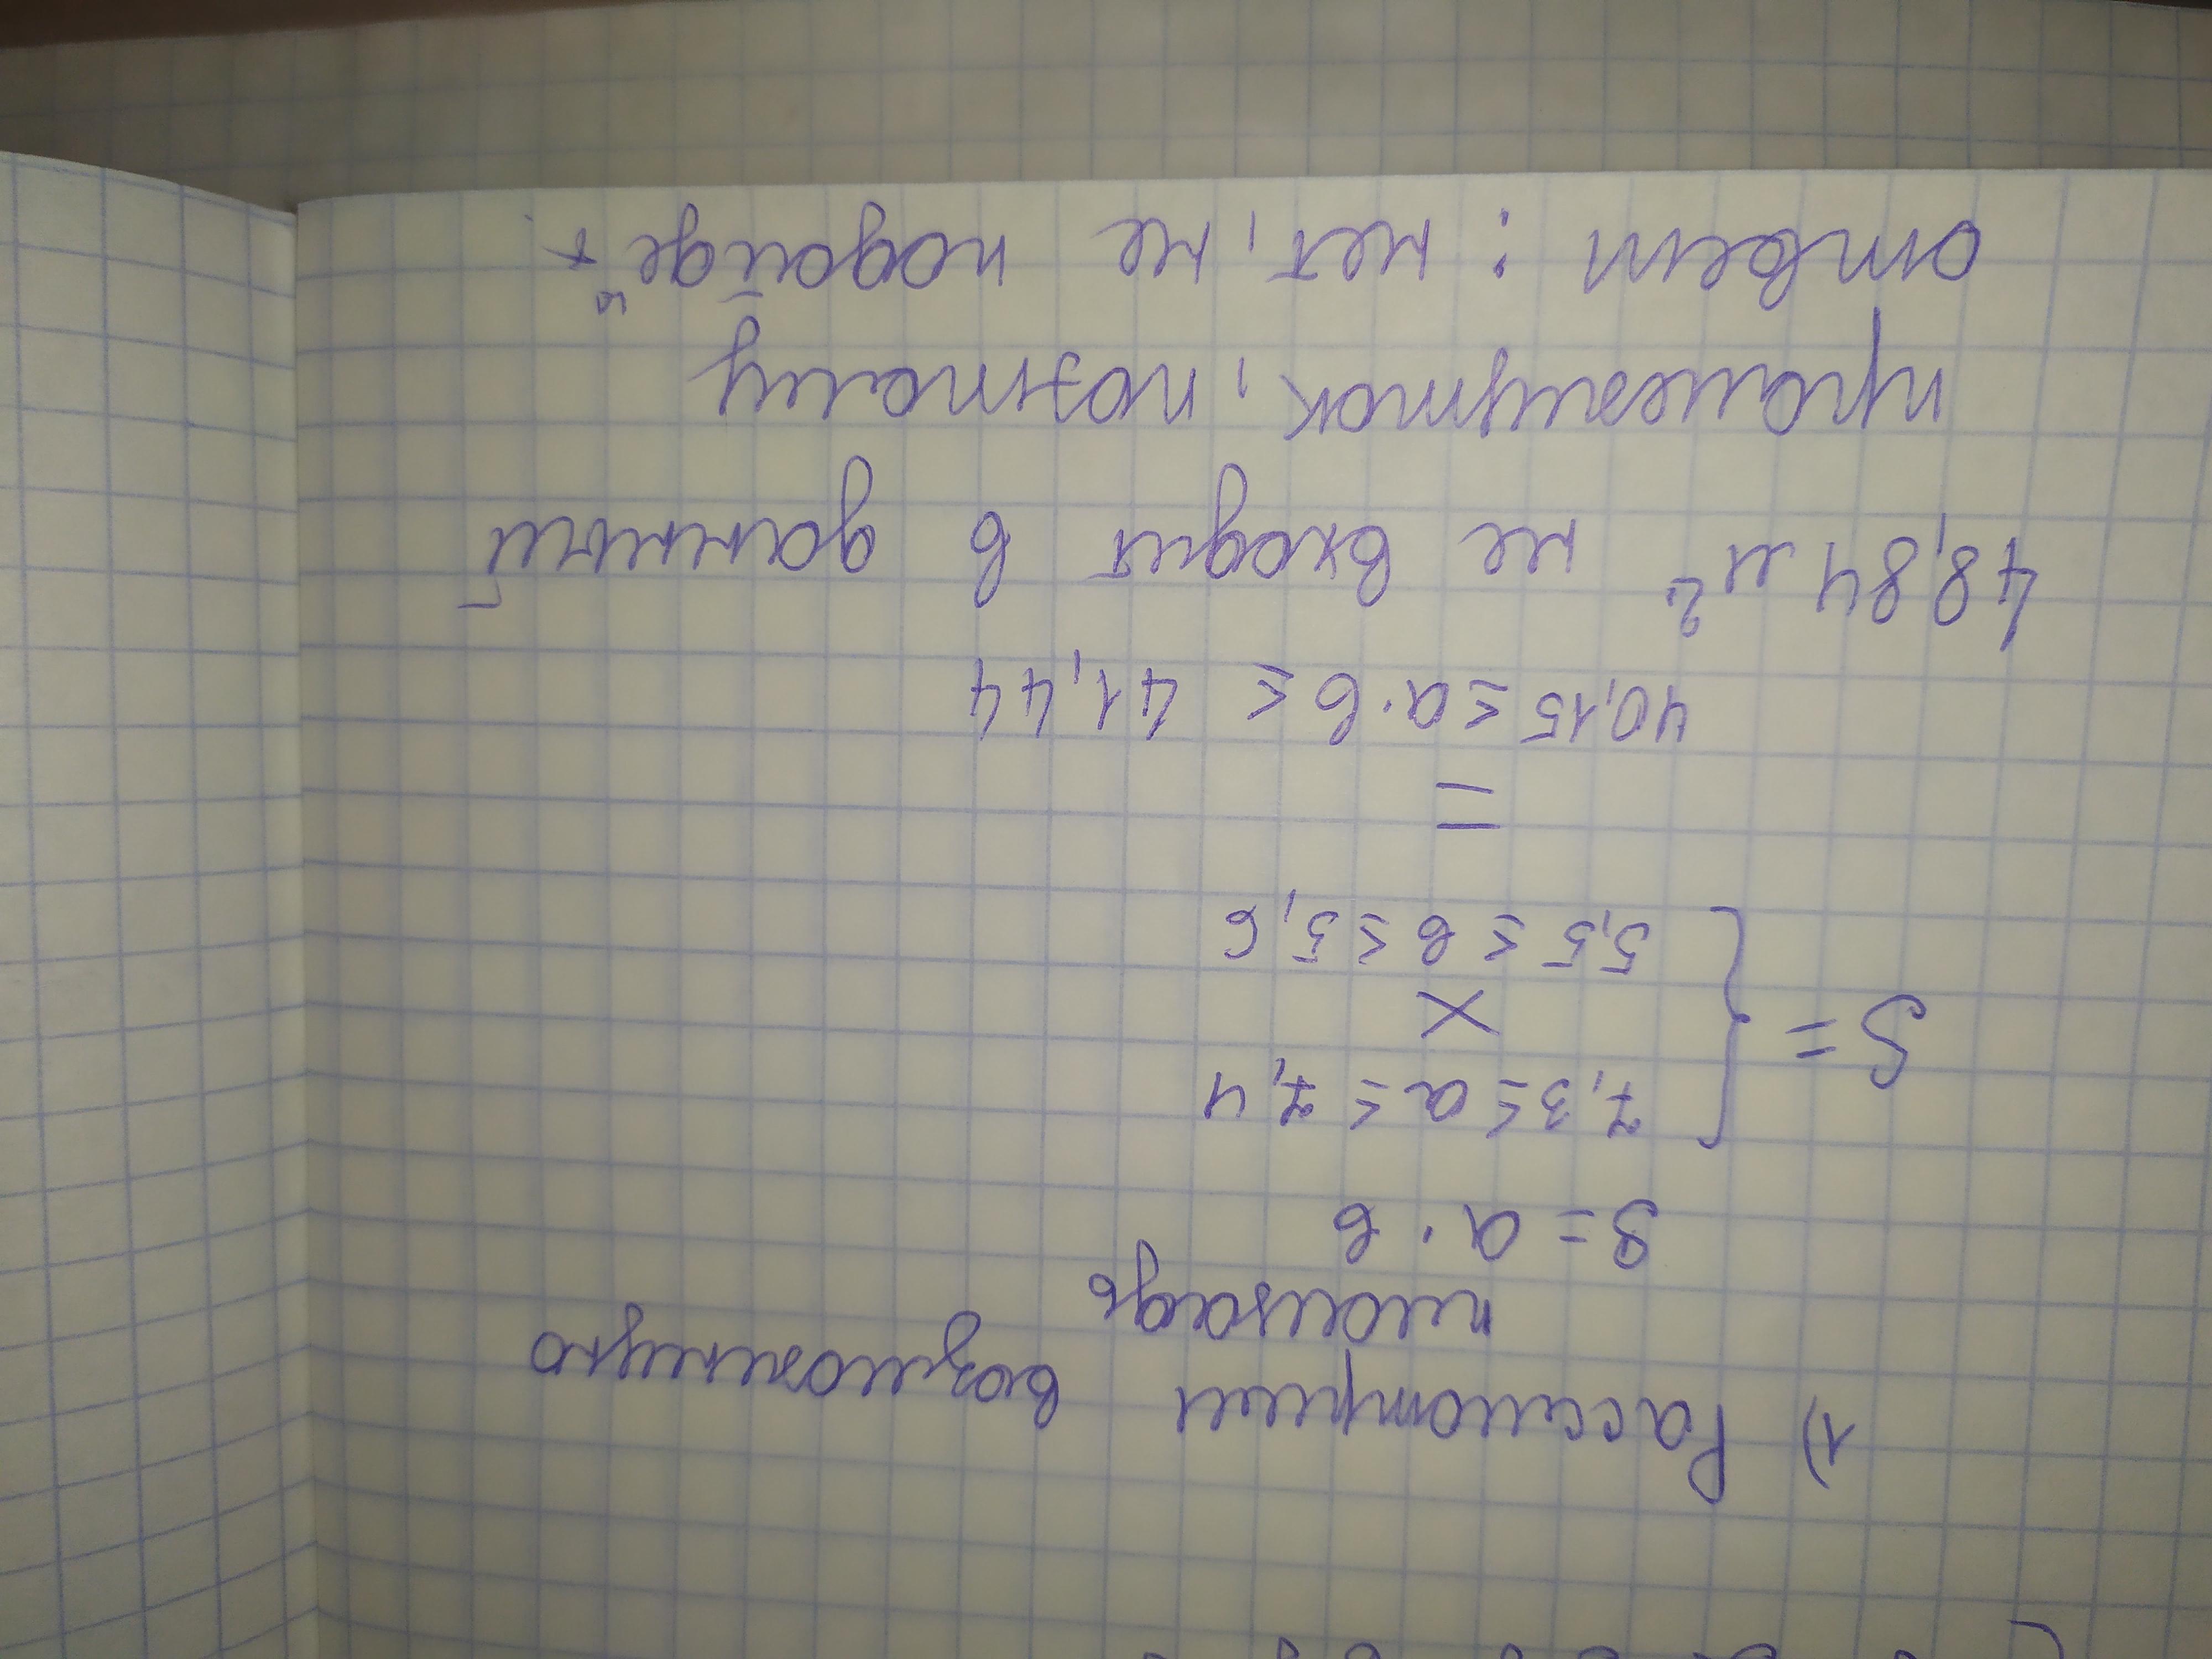 1) Рассмотрим возможную
площадь
S = a · b
7,3 ≤ a ≤ 7,4
S = { ×
5,5 ≤ b ≤ 5,6
=
40,15 ≤ a · b ≤ 41,44
48,84 м² не входит в данный
промежуток, поэтому
ответ: нет, не подойдёт